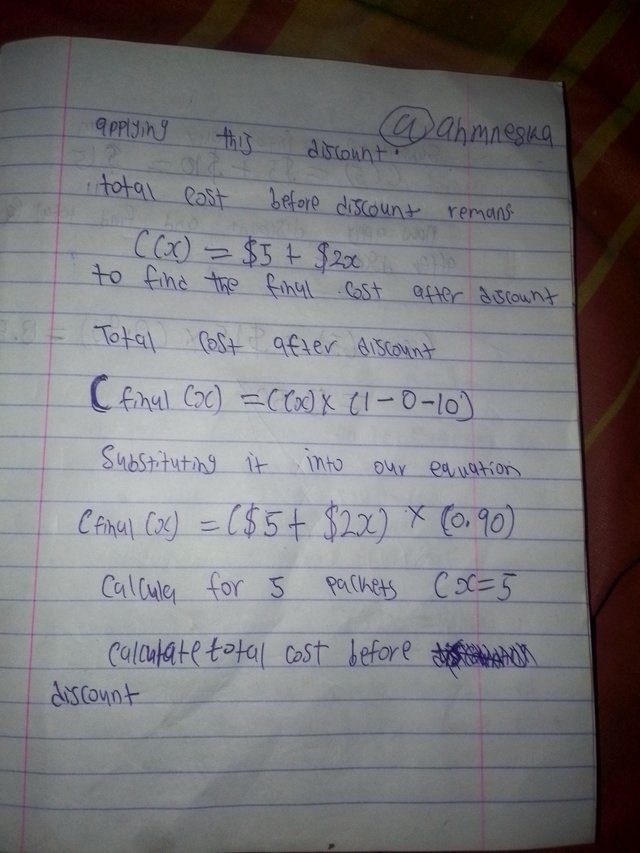 @ahmneska
applying this discount.
total cost before discount remans
C(x) = $5 + $2x
to find the final cost after discount
Total cost after discount
C final (x) = C(x) x (1-0-10)
Substituting it into our equation
C final (x) = ($5 + $2x) x (0.90)
Calcula for 5 packets (x=5
calculate total cost before
discount